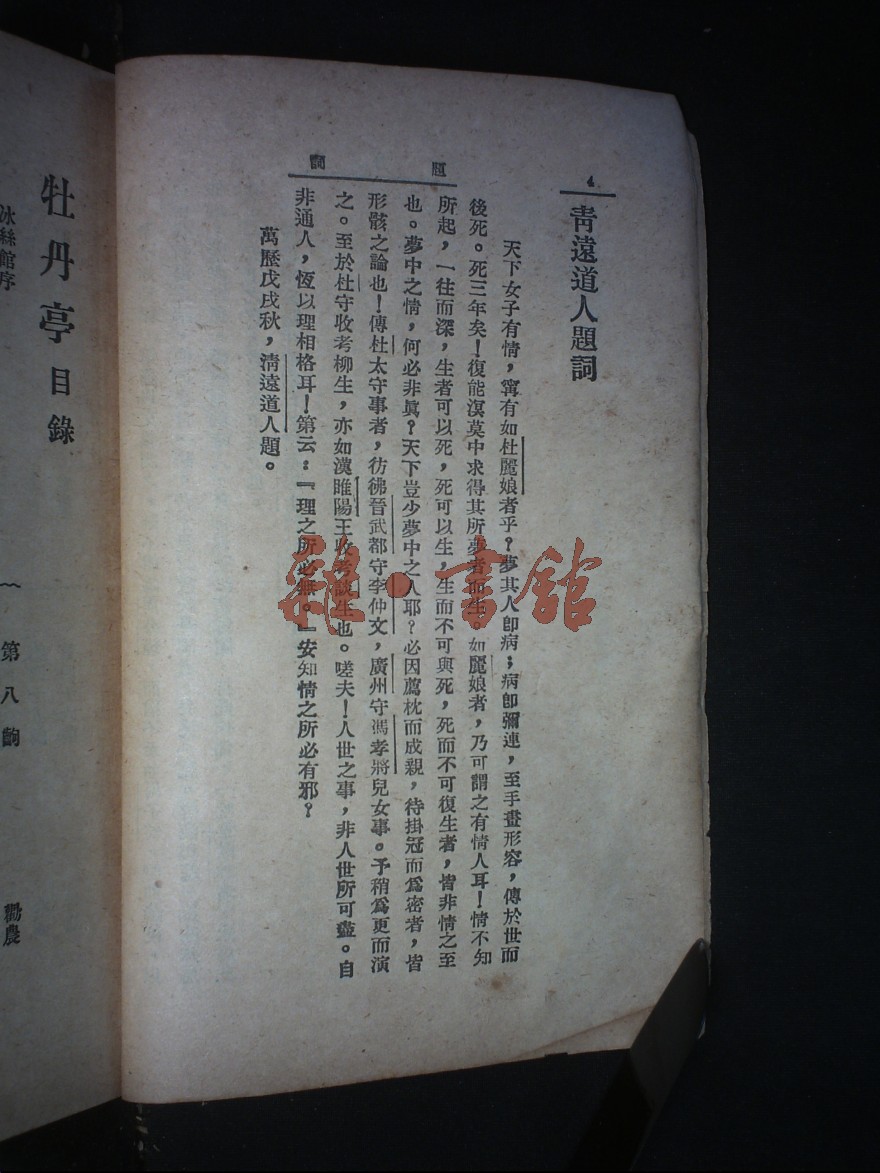 題詞
4
青遠道人題詞
天下女子有情,寗有如杜麗娘者乎?夢其人卽病;病卽彌連,至手畫形容,傳於世而
後死。死三年矣!復能溟莫中求得其所夢者而生。如麗娘者,乃可謂之有情人耳!情不知
所起,一往而深,生者可以死,死可以生,生而不可與死,死而不可復生者,皆非情之至
也。夢中之情,何必非眞?天下豈少夢中之人耶?必因薦枕而成親,待掛冠而爲密者,皆
形骸之論也!傳杜太守事者,彷彿晉武都守李仲文,廣州守馮孝將兒女事。予稍爲更而演
之。至於杜守收考柳生,亦如漢睢陽王收考談生也。嗟夫!人世之事,非人世所可盡。自
非通人,恆以理相格耳!第云:『理之所必無。』安知情之所必有邪?
萬歷戊戌秋,淸遠道人題。
牡丹亭目錄
冰絲館序
第八齣
勸農
雜·書館